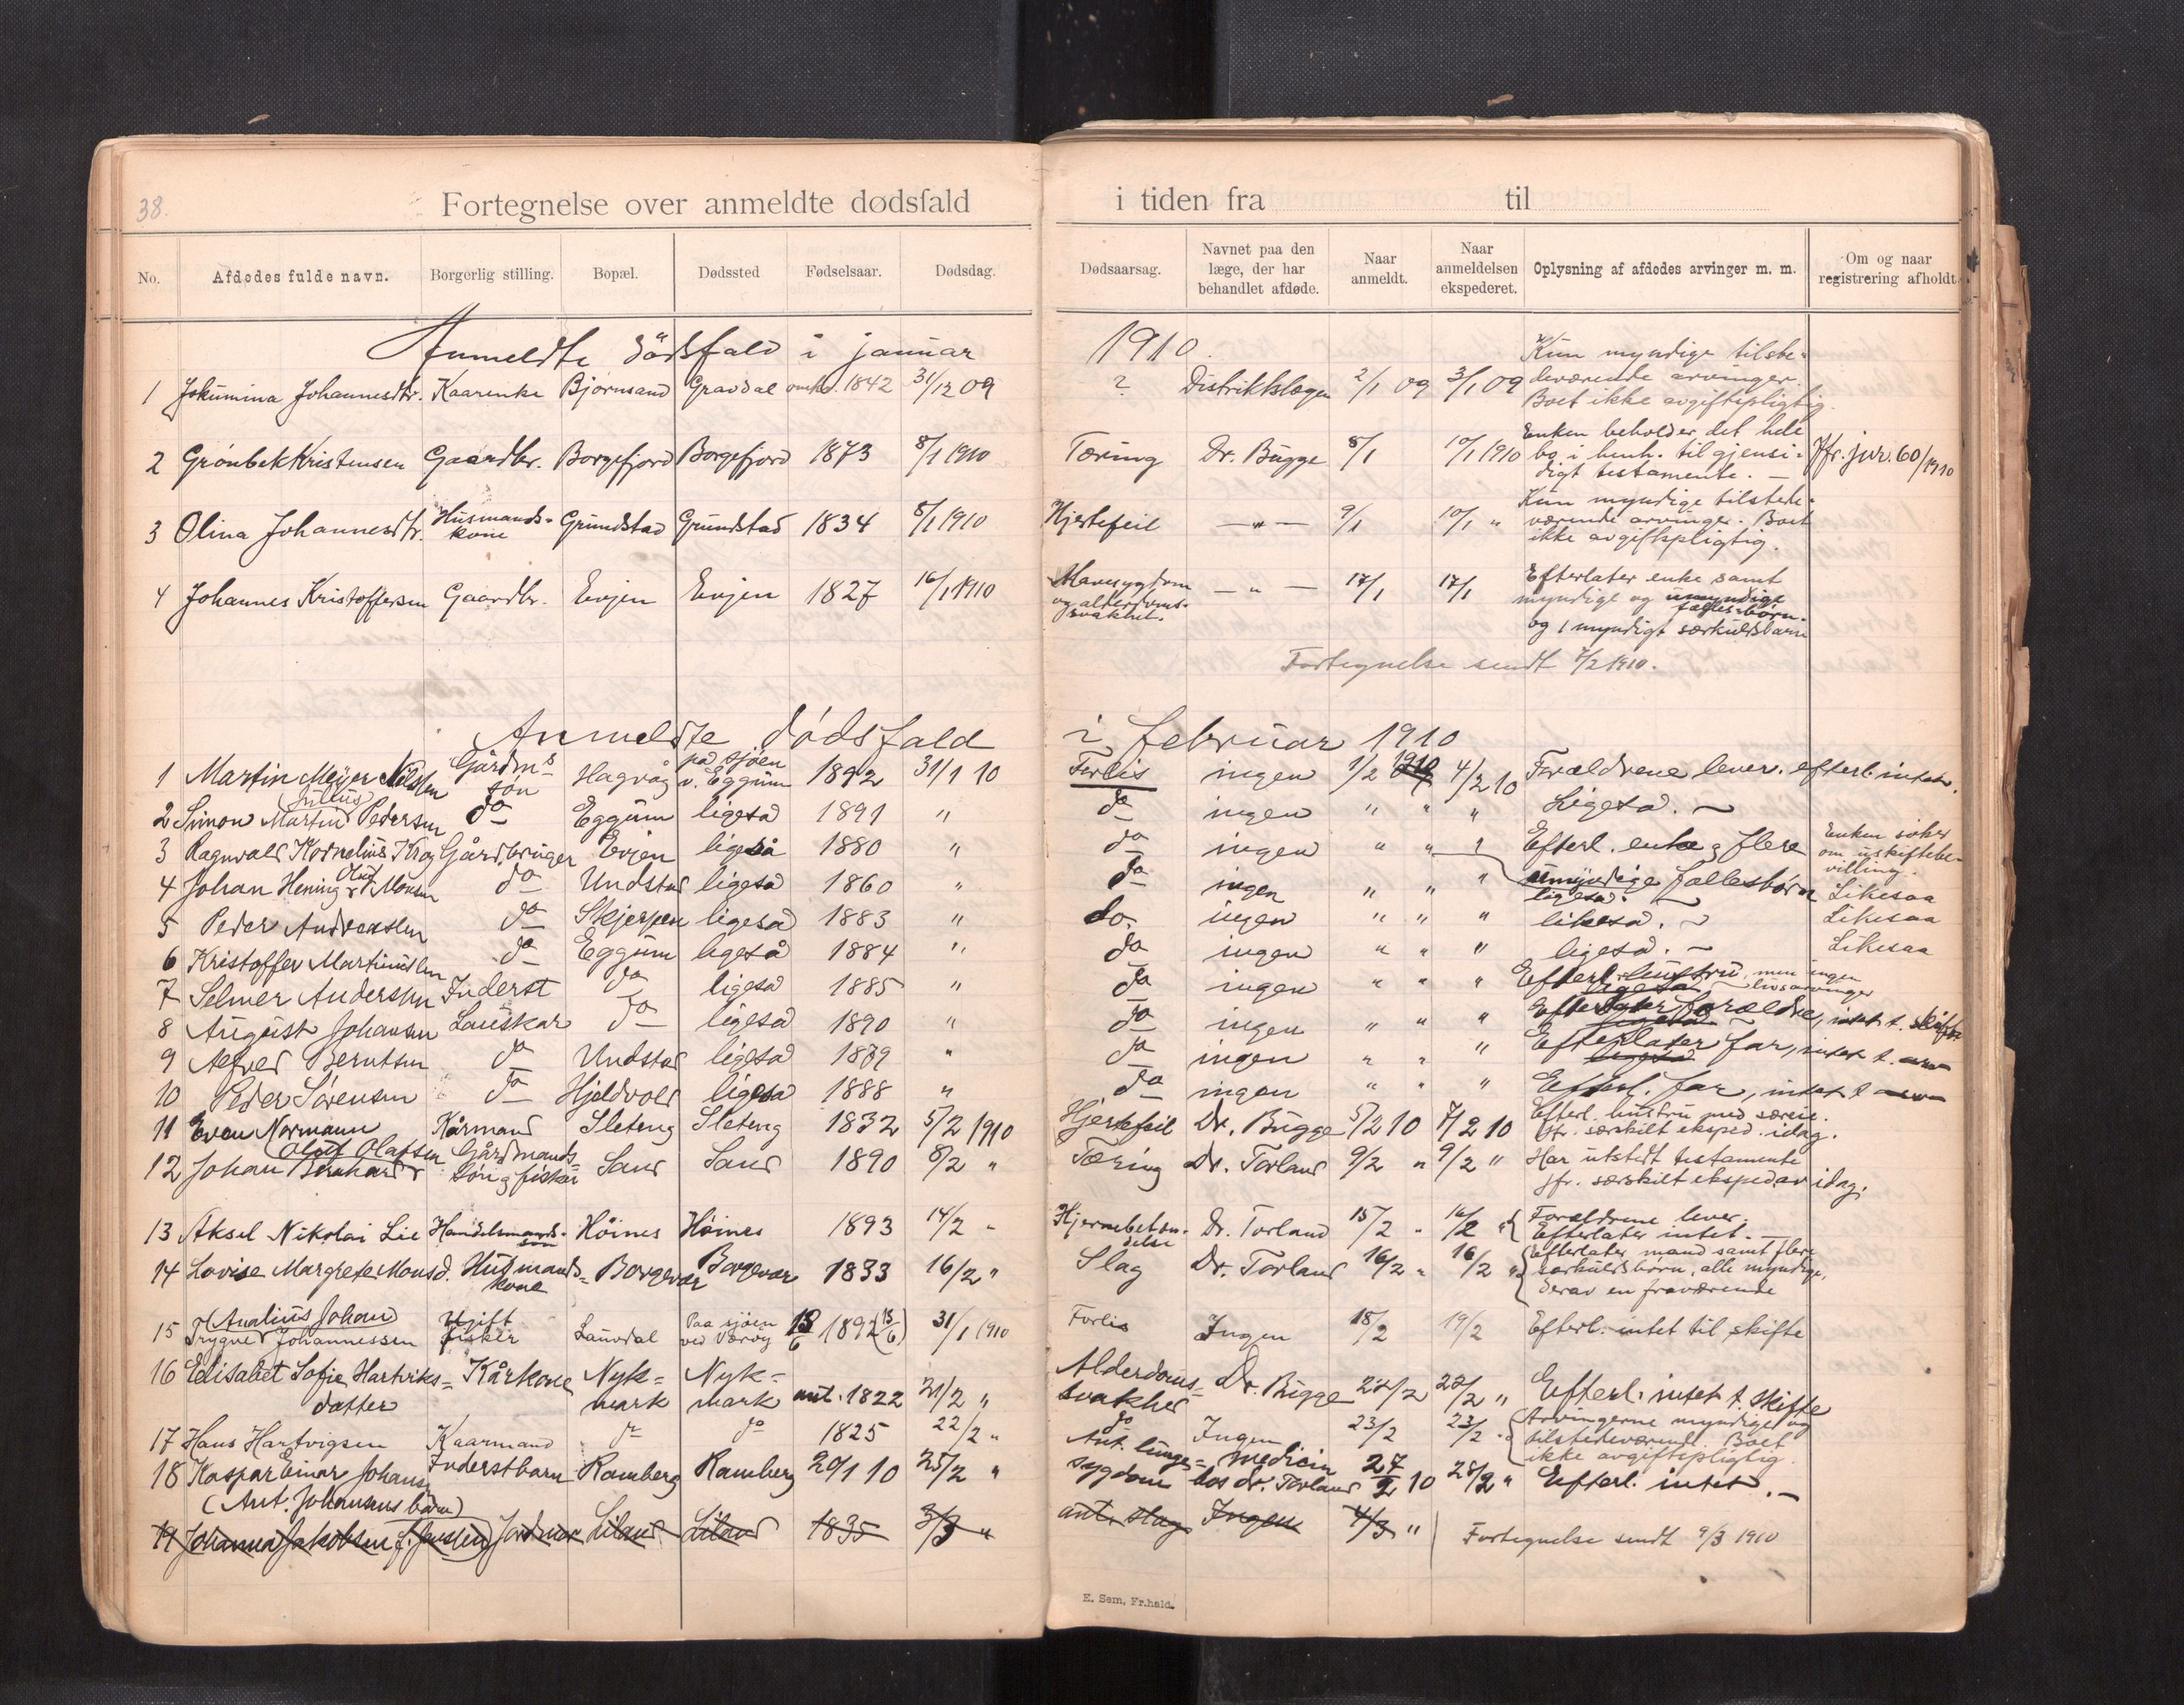 38.
Fortegnelse over anmeldte dødsfald i tiden fra til
No. Afdødes fulde navn. Borgerlig stilling. Bopæl. Dødssted Fødselsaar. Dødsdag. Dødsaarsag. Navnet paa den læge, der har behandlet afdøde. Naar anmeldt. Naar anmeldelsen ekspederet. Oplysning af afdødes arvinger m. m. Om og naar registrering afholdt.
Anmeldte dödsfald i januar 1910.
1 Jokumina Johannesdtr. Kaarenke Bjørnsand Gravdal omkr. 1842 31/12 09 ? Distriktslægen 2/1 09 3/1 09 Kun myndige tilstedeværende arvinger. Boet ikke avgiftspligtig.
2 Grönbek Kristensen Gaardbr. Borgefjord Borgefjord 1873 8/1 1910 Tæring Dr. Bugge 8/1 10/1 1910 Enken beholder det hele bo i henh. til gjensidigt testamente. — Jfr. jur. 60/1910
3 Olina Johannesdtr. Husmandskone Grundstad Grundstad 1834 8/1 1910 Hjertefeil — " — 9/1 10/1 " Kun myndige tilstedeværende arvinger. Boet ikke avgiftspligtig.
4 Johannes Kristoffersen Gaardbr. Evjen Evjen 1827 16/1 1910 Mavesygdom og alderdomssvakhet. — " — 17/1 17/1 Efterlater enke samt myndige og umyndige fælles-børn. og 1 myndigt særkuldsbarn
Fortegnelse sendt 7/2 1910.
Anmeldte dödsfald i februar 1910
1 Martin Meyer Nilssen Gårdms sön Hagvåg på sjöen v. Eggum 1892 31/1 10 Forlis ingen 1/2 1910 4/2 10 Forældrene lever. efterl. intet.
2 Simon Martin (Julius) Pedersen do Eggum ligeså 1891 " do ingen " " " Ligeså. —
3 Ragnvald Kornelius Krog Gårdbruger Evjen ligeså 1880 " do ingen " " " Efterl. enke og flere umyndige fællesbörn Enken söker om uskiftebevilling.
4 Johan Hening Oluf Monsen do Undstad ligeså 1860 " do ingen " " " ligeså. Likesaa
5 Peder Andreassen do Skjerpen ligeså 1883 " do. ingen " " " likeså. — Likesaa
6 Kristoffer Martinussen do Eggum ligeså 1884 " do ingen " " " ligeså. — Likesaa
7 Selmer Anderssen Inderst do ligeså 1885 " do ingen " " " Efterl. hustru, men ingen livsarvinger
8 August Johansen Lauskar do ligeså 1890 " do ingen " " " Efterlater forældre, intet t. skifte
9 Alfred Berntsen do Undstad ligeså 1879 " do ingen " " " Efterlater far, intet t.
10 Peder Sörensen do Hjeldvold ligeså 1888 " do ingen " " " Efterl. far, intet t
11 Even Normann Kårmand Sleteng Sleteng 1832 5/2 1910 Hjertefeil Dr. Bugge 5/2 10 7/2 10 Efterl. hustru med særeie. Jfr. særskilt eksped. idag.
12 Johan Bernhard (Oluf Olafsen Gårdmandssön og fisker Sand Sand 1890 8/2 " Tæring Dr. Torland 9/2 " 9/2 " Har utstedt testamente jfr. særskilt eksped av idag.
13 Aksel Nikolai Lie Handelsmands-sön Höines Höines 1893 14/2 " Hjernebetændelse Dr. Torland 15/2 " 16/2 " Forældrene lever. Efterlater intet. —
14 Lovise Margrete Monsd. Husmandskone Borgevær Borgevær 1833 16/2 " Slag Dr. Torland 16/2 " 16/2 " Efterlater mand samt flere særkuldsbörn, alle myndige, derav en fraværende
15 Trygve (Analius Johan) Johannessen Ugift fisker Lauvdal Paa sjöen ved Værøy 13/6 1892 (13/6) 31/1 1910 Forlis Ingen 18/2 19/2 Efterl. intet til skifte
16 Elisabet Sofie Hartviksdatter Kårkone Nykmark Nykmark ant. 1822 21/2 " Alderdomssvakhed Dr. Bugge 22/2 22/2 " Efterl. intet t. skifte
17 Hans Hartvigsen Kaarmand do do 1825 22/2 " do Ingen 23/2 23/2 " Arvingerne myndige og tilstedeværende. Boet ikke avgiftspligtig.
18 Kaspar Einar Johans. (Ant. Johansens barn) Inderstbarn Ramberg Ramberg 20/1 10 25/2 " Ant. lungesygdom medicin hos dr. Torland 27/2 10 28/2 " Efterl. intet. —
19 Johanna Jakobsen f. Janssen Jordmor Liland Liland 1835 3/3 " ant. slag Ingen 4/3 " Fortegnelse sendt 9/3 1910
E. Sem, Fr.hald.